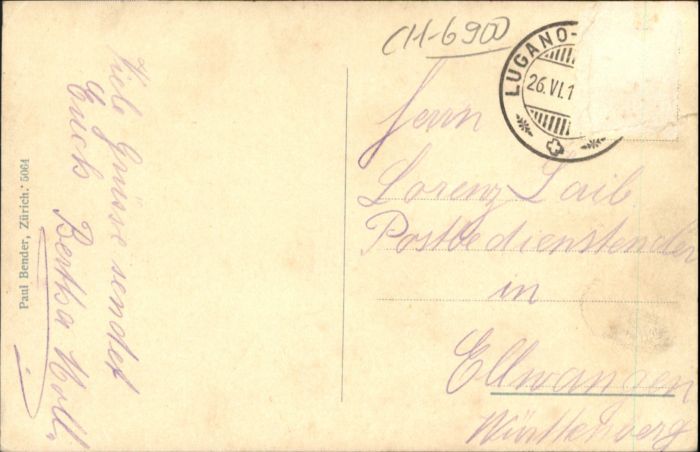 CH-6900
LUGANO-
26.VI.1
Herrn
Lorenz Laib
Postbediensteter
in
Ellwangen
Württemberg
Viele Grüsse sendet
Euch Bertha Moll.
Paul Bender, Zürich. 5064